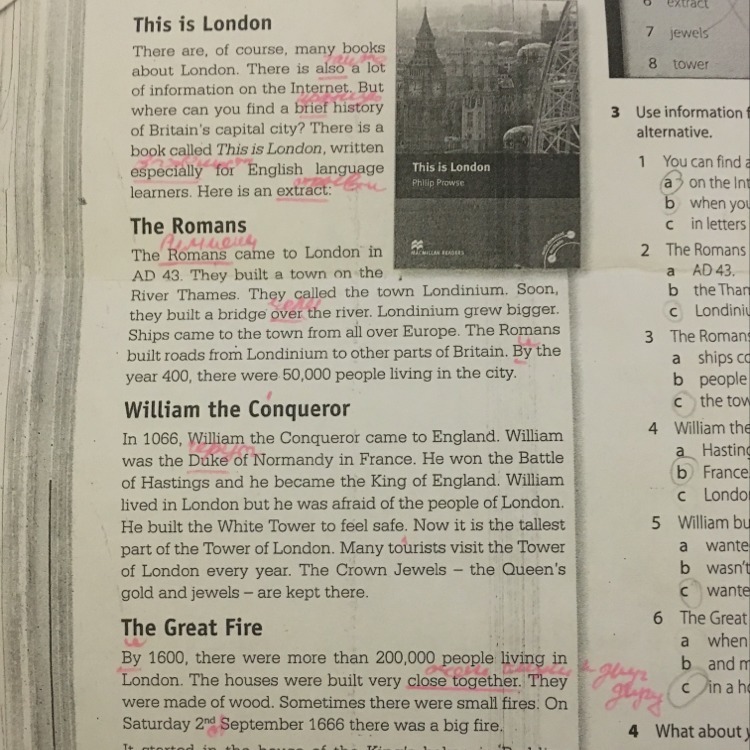 This is London
There are, of course, many books
about London. There is also a lot
of information on the Internet. But
where can you find a brief history
of Britain's capital city? There is a
book called This is London, written
especially for English language
learners. Here is an extract:
This is London
Philip Prowse
MACMILLAN READERS
The Romans
The Romans came to London in
AD 43. They built a town on the
River Thames. They called the town Londinium. Soon,
they built a bridge over the river. Londinium grew bigger.
Ships came to the town from all over Europe. The Romans
built roads from Londinium to other parts of Britain. By the
year 400, there were 50,000 people living in the city.
William the Conqueror
In 1066, William the Conqueror came to England. William
was the Duke of Normandy in France. He won the Battle
of Hastings and he became the King of England. William
lived in London but he was afraid of the people of London.
He built the White Tower to feel safe. Now it is the tallest
part of the Tower of London. Many tourists visit the Tower
of London every year. The Crown Jewels – the Queen's
gold and jewels – are kept there.
The Great Fire
By 1600, there were more than 200,000 people living in
London. The houses were built very close together. They
were made of wood. Sometimes there were small fires. On
Saturday 2nd September 1666 there was a big fire.
6 extract
7 jewels
8 tower
3 Use information f
alternative.
1 You can find a
a on the Int
b when you
c in letters
2 The Romans
a AD 43.
b the Tham
c Londiniu
3 The Romans
a ships co
b people
c the tow
4 William the
a Hasting
b France
c Londo
5 William bu
a wante
b wasn't
c wante
6 The Great
a when
b and m
c in a ho
4 What about